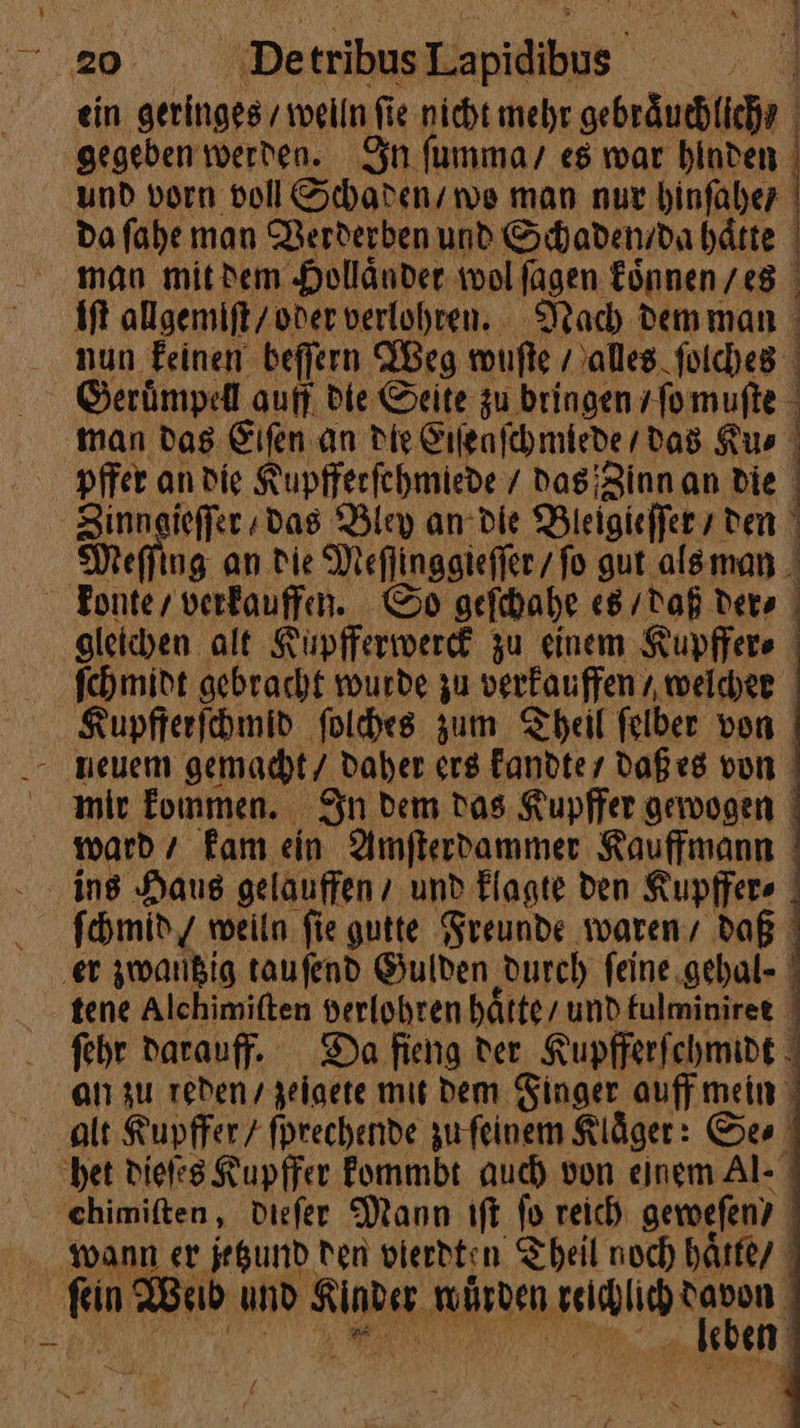 20 De tribus Lapidibus
ein geringes / weiln ſie nicht mehr gebraͤuchlich /
gegeben werden. In ſumma / es war hinden
und vorn voll Schaden / wo man nur hinſahe /
da ſahe man Verderben und Schaden / da haͤtte
man mit dem Hollaͤnder wol ſagen koͤnnen / es
iſt allgemiſt / oder verlohren. Nach dem man
nun keinen beſſern Weg wuſte / alles ſolches
Geruͤmpell auff die Seite zu bringen / ſo muſte
man das Eiſen an die Eiſenſchmiede / das Ku⸗
pffer an die Kupfferſchmiede / das Zinn an die
Zinngieſſer / das Bley an die Bleigieſſer / den
Meſſing an die Meſſinggieſſer / ſo gut als man
konte / verkauffen. So geſchahe es / daß der⸗
gleichen alt Kupfferwerck zu einem Kupffer⸗
ſchmidt gebracht wurde zu verkauffen / welcher
Kupfferſchmid ſolches zum Theil ſelber von
neuem gemacht / daher ers kandte / daß es von
mir kommen. In dem das Kupffer gewogen
ward / kam ein Amſterdammer Kauffmann
ins Haus gelauffen / und klagte den Kupffer⸗
ſchmid / weiln ſie gutte Freunde waren / daß
er zwantzig tauſend Gulden durch ſeine gehal-
tene Alchimiſten verlohren haͤtte / und fulminiret
ſehr darauff. Da fieng der Kupfferſchmidt
an zu reden / zeigete mit dem Finger auff mein
alt Kupffer / ſprechende zu ſeinem Klaͤger: Se⸗
het dieſes Kupffer kommbt auch von einem Al-
chimiſten, dieſer Mann iſt ſo reich geweſen /
wann er jetzund den vierdten Theil noch haͤtte /
ſein Weib und Kinder wuͤrden reichlich davon
leben